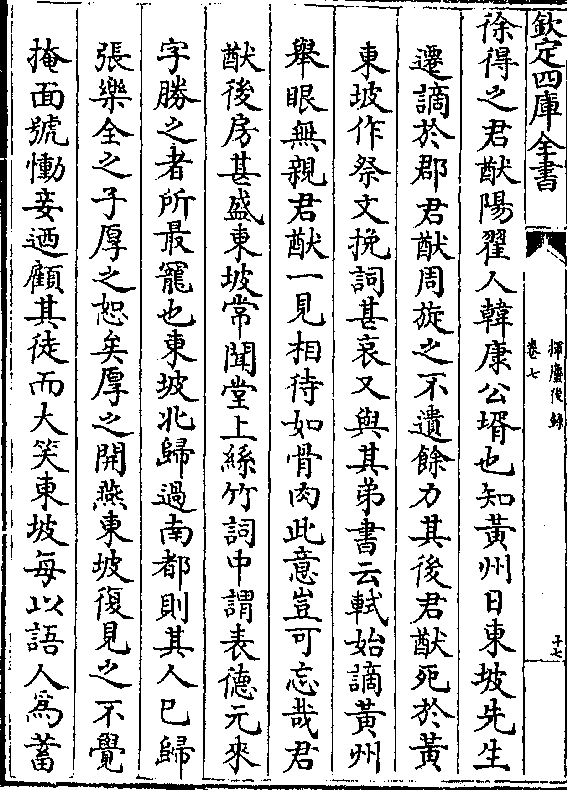 欽定四庫全書
揮麈後錄
卷七
十七
徐得之君猷陽翟人韓康公壻也知黃州日東坡先生
遷謫於郡君猷周旋之不遺餘力其後君猷死於黃
東坡作祭文挽詞甚哀又與其弟書云軾始謫黃州
舉眼無親君猷一見相待如骨肉此意豈可忘哉君
猷後房甚盛東坡常聞堂上絲竹詞中謂表德元來
字勝之者所最寵也東坡北歸過南都則其人已歸
張樂全之子厚之恕矣厚之開燕東坡復見之不覺
掩面號慟妾迺顧其徒而大笑東坡每以語人為蓄